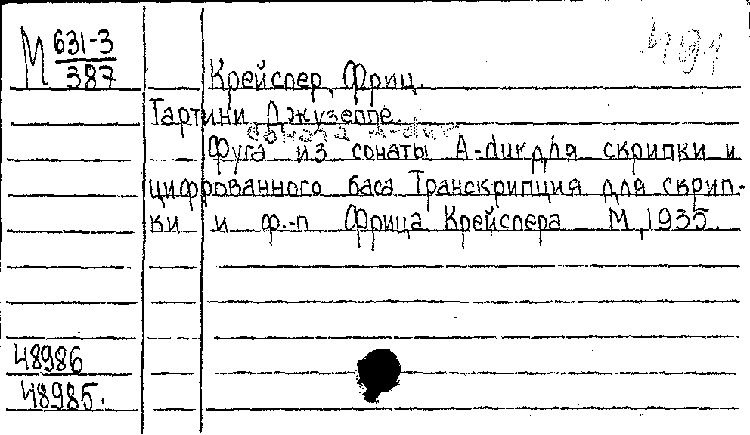 М 631-3
387
Крейслер, Фриц.
Тартини, Джузеппе.
Фуга из сонаты A-dur для скрипки и
цифрованного баса Транскрипция для скрип-
ки и ф.-п Фрица Крейслера М, 1935.
48986
48985.